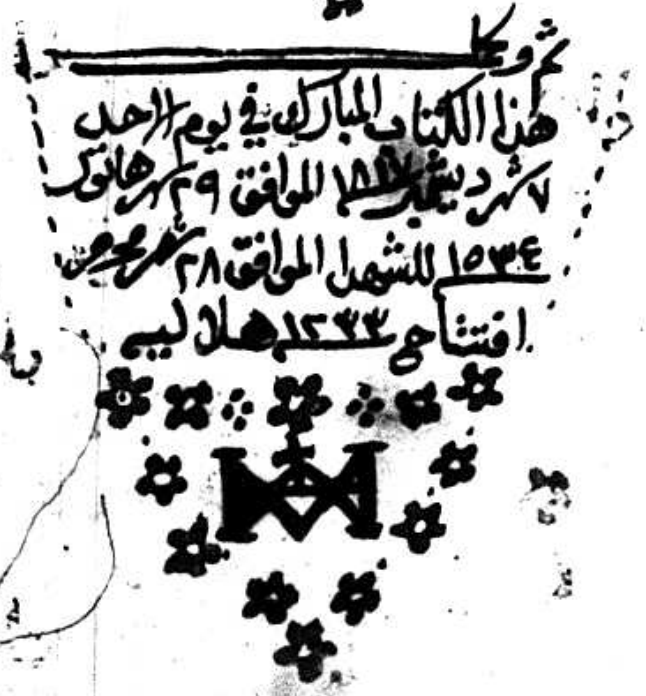 تم وكمل
هذا الكتاب المبارك في يوم الاحد
٧ شهر ديسمبر ١٨١٧ الموافق ٢٩ شهر هاتور
١٥٣٤ للشهدا الموافق ٢٨ شهر محرم
افتتاح ١٢٣٣ هلاليه